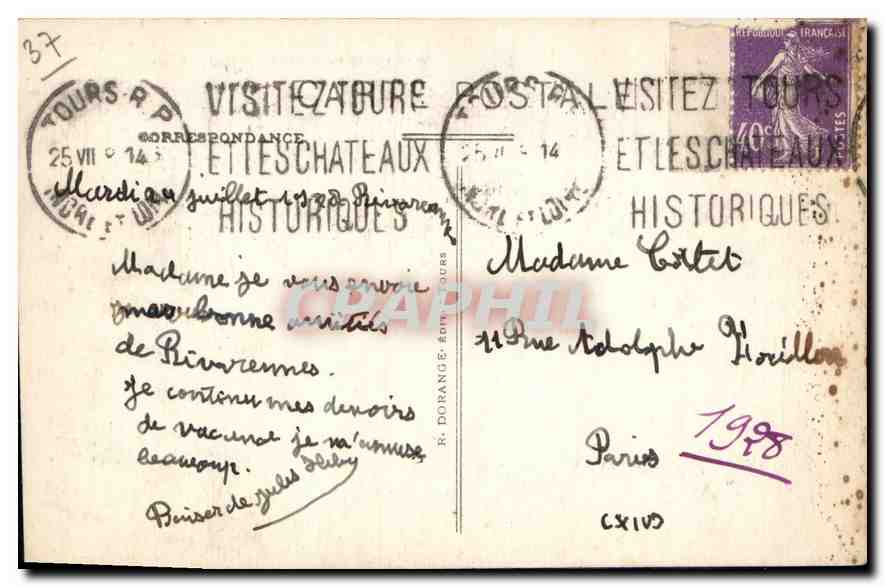 37
REPUBLIQUE FRANÇAISE
40c
POSTES
TOURS R.P.
25 VII
14
INDRE ET LOIRE
VISITEZ TOURS
ET LES CHATEAUX
HISTORIQUES
TOURS R.P.
14
INDRE ET LOIRE
VISITEZ TOURS
ET LES CHATEAUX
HISTORIQUES
CARTE POSTALE
CORRESPONDANCE
Mardi juillet Rivarennes
Madame je vous envoie
mes bonne amitiés
de Rivarennes.
je continu mes devoirs
de vacance je m'amuse
beaucoup.
Baiser de Jules
R. DORANGE. ÉDIT. TOURS
Madame
11 Rue Adolphe
Paris
1928
(XIV)
CPAPHIL